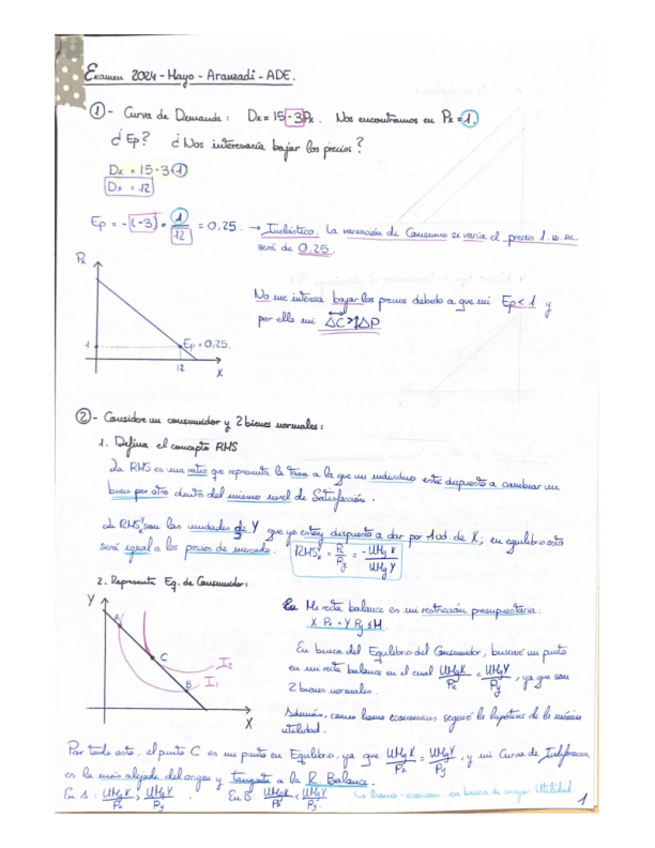 Examen 2024 - Mayo - Aranzadi - ADE.
①- Curva de Demanda: Dx = 15 - 3Px. Nos encontramos en Px = 1.
¿Ep? ¿Nos interesaría bajar los precios?
Dx = 15 - 3 (1)
Dx = 12
Ep = - (-3) · 1/12 = 0,25. → Inelástico. La variación de Consumo si varía el precio 1 u.m.
será de 0,25.
Px
No me interesa bajar los precios debido a que mi Ep < 1 y
por ello mi ΔC > ΔP
1
Ep = 0,25.
12
X
②- Considere un consumidor y 2 bienes normales:
1. Defina el concepto RMS
La RMS es una ratio que representa la tasa a la que un individuo está dispuesto a cambiar un
bien por otro dentro del mismo nivel de Satisfacción.
La RMS son las unidades de Y que yo estoy dispuesto a dar por 1 ud. de X; en equilibrio esto
será igual a los precios de mercado. RMS = Px/Py = -UMgX/UMgY
2. Represente Eq. de Consumidor:
Y
A
C
B
I2
I1
X
Mi recta balance es mi restricción presupuestaria:
X·Px + Y·Py ≤ M.
En busca del Equilibrio del Consumidor, buscaré un punto
en mi recta balance en el cual UMgX/Px = UMgY/Py, ya que son
2 bienes normales.
Además, como homo economicus seguiré la hipótesis de la máxima
utilidad.
Por todo esto, el punto C es mi punto en Equilibrio, ya que UMgX/Px = UMgY/Py, y mi Curva de Indiferencia
es la más alejada del origen y tangente a la R. Balance.
En A: UMgX/Px > UMgY/Py. En B: UMgX/Px < UMgY/Py. ↳ homo-econom. en busca de mayor Utilidad
1